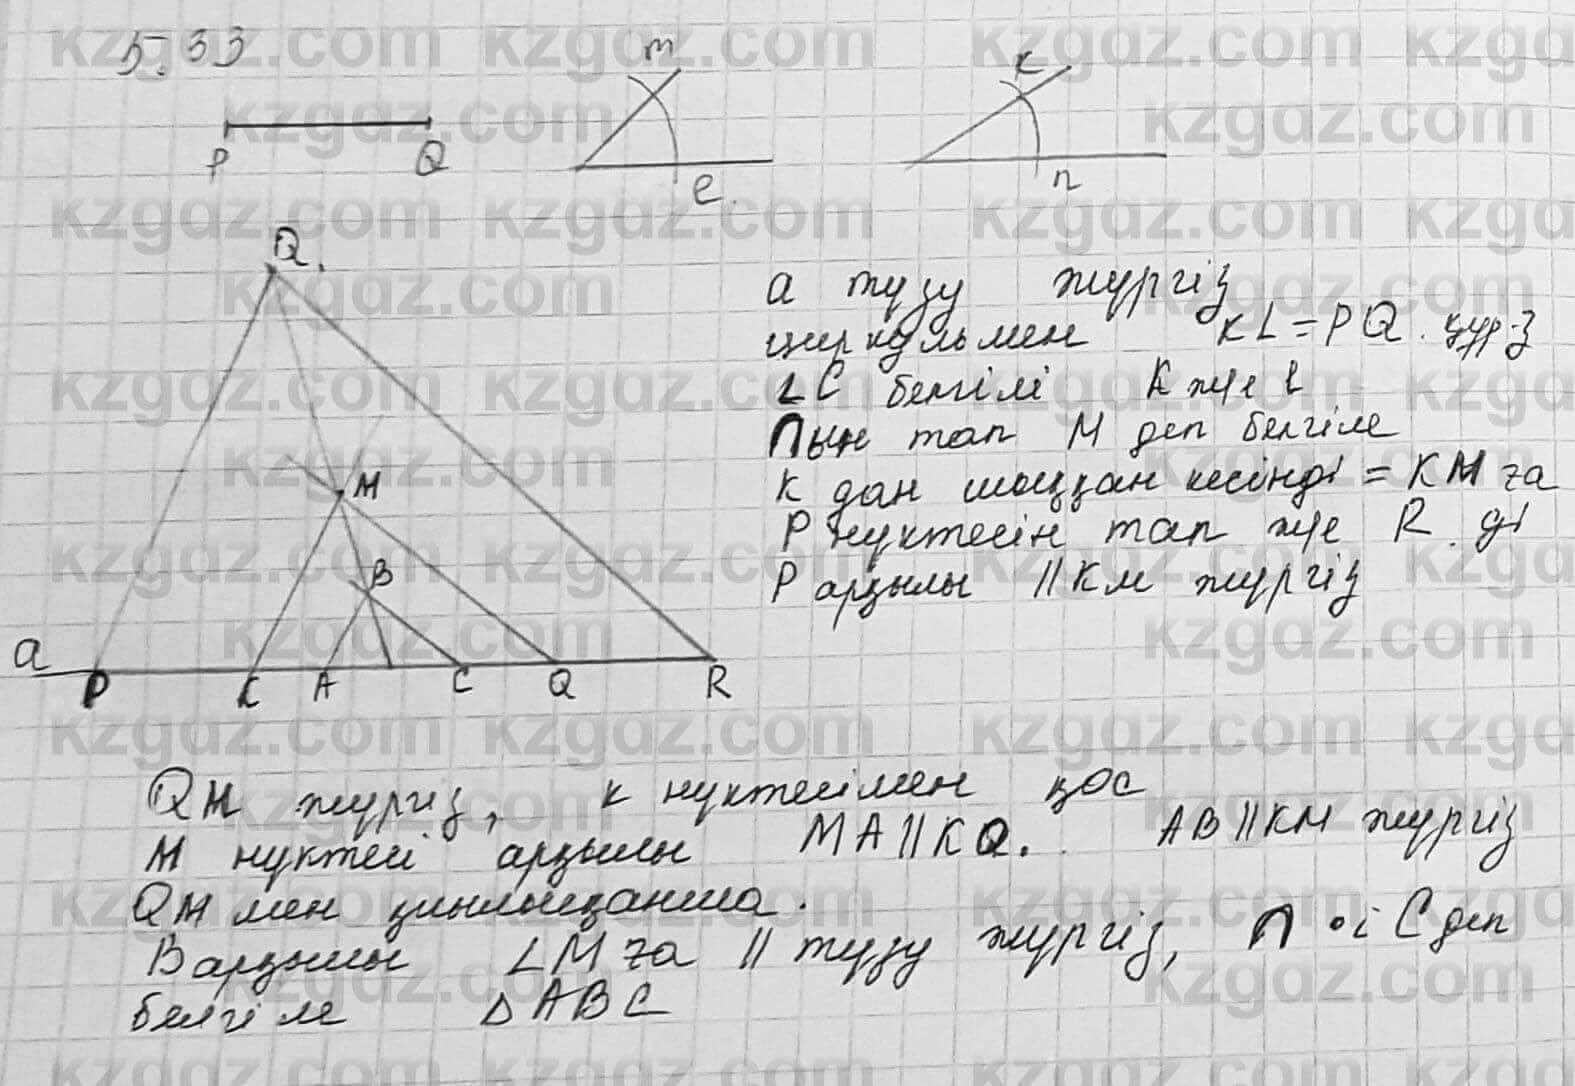 5.33
P Q
m
l.
k
n
Q.
M
B
a
P K A C Q R
a түзу жүргіз
циркульмен KL=PQ. жүр-з
∠C белгілі K және l
∩ын тап M деп белгіле
K дан шыққан кесінді = KM ға
P нүктесін тап және R ді
P арқылы ||KM жүргіз
QM жүргіз, K нүктесімен қос
M нүктесі арқылы MA||KQ. AB||KM жүргіз
QM мен қиылысқанша.
B арқылы LM ға || түзу жүргіз, ∩ C деп
белгіле △ABC
kzgdz.com